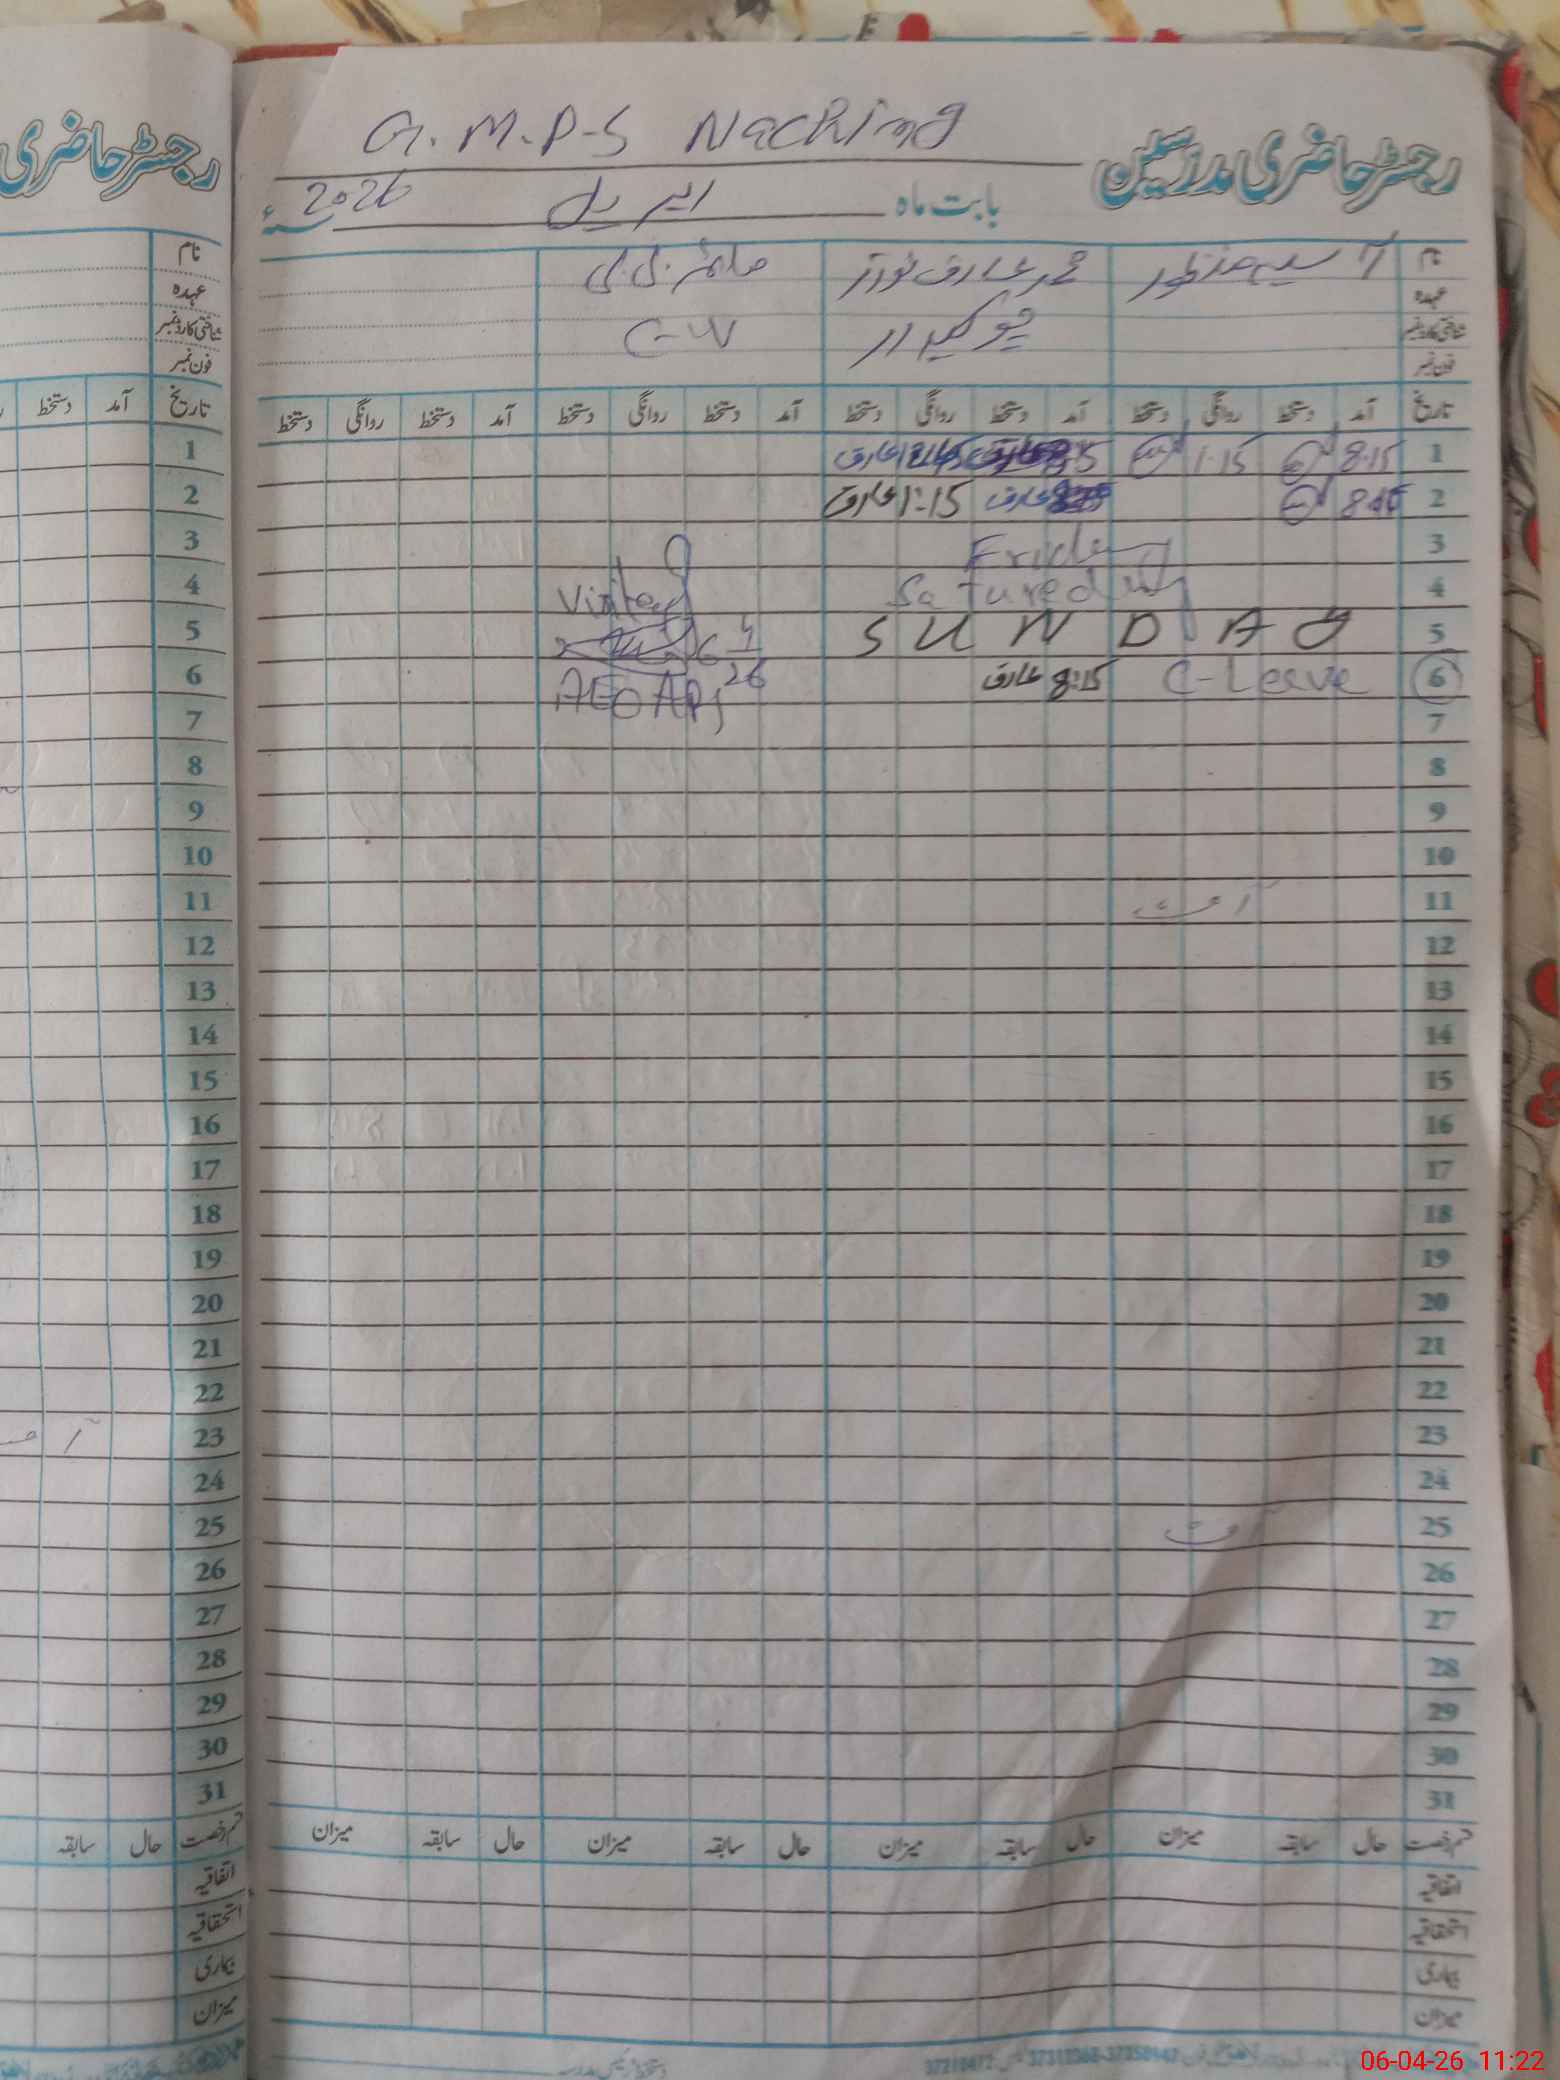 G.M.P-S Naching
رجسٹر حاضری مدرسین
رجسٹر حاضری
بابت ماہ اپریل 2026ء
نام آسیہ منظور محمد عارف نواز صائمہ بی بی
عہدہ چوکیدار C-W
شناختی کارڈ نمبر
فون نمبر
نام
عہدہ
شناختی کارڈ نمبر
فون نمبر
تاریخ آمد دستخط روانگی دستخط آمد دستخط روانگی دستخط آمد دستخط روانگی دستخط آمد دستخط روانگی دستخط
تاریخ آمد دستخط
1 8:15 1:15 عارف 1
2 عارف 1:15 عارف 2
3 Friday 3
4 Satureday Visited 4
5 S U N D A Y 5
6 C-Leave 8:15 عارف 6 4 26 6
AEO
7 7
8 8
9 9
10 10
11 11
12 12
13 13
14 14
15 15
16 16
17 17
18 18
19 19
20 20
21 21
22 22
23 23
24 24
25 25
26 26
27 27
28 28
29 29
30 30
31 31
قسم رخصت حال سابقہ میزان حال سابقہ میزان حال سابقہ میزان حال سابقہ میزان
قسم رخصت حال سابقہ
اتفاقیہ اتفاقیہ
استحقاقیہ استحقاقیہ
بیماری بیماری
میزان میزان
06-04-26 11:22